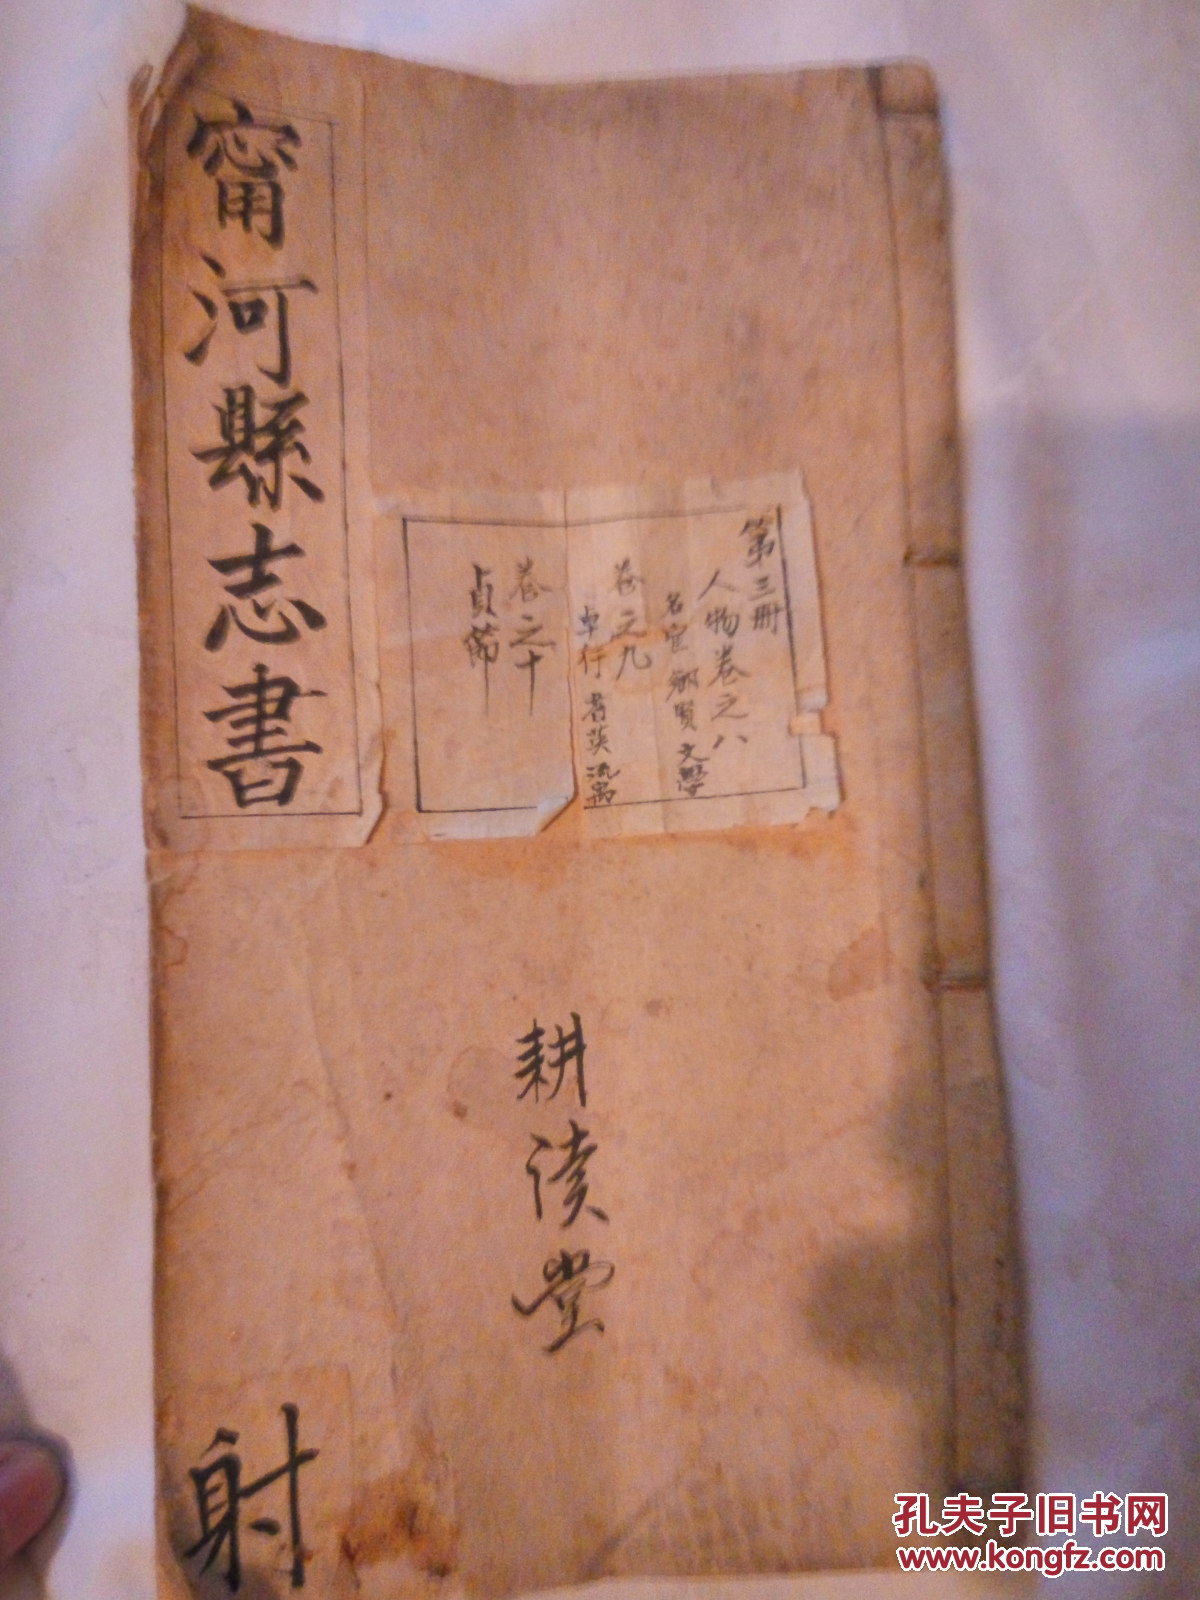 甯河縣志書
第三册
人物卷之八
名宦鄉賢文學
卷之九
卓行耆英流寓
卷之十
貞節
耕读堂
射
孔夫子旧书网
www.kongfz.com